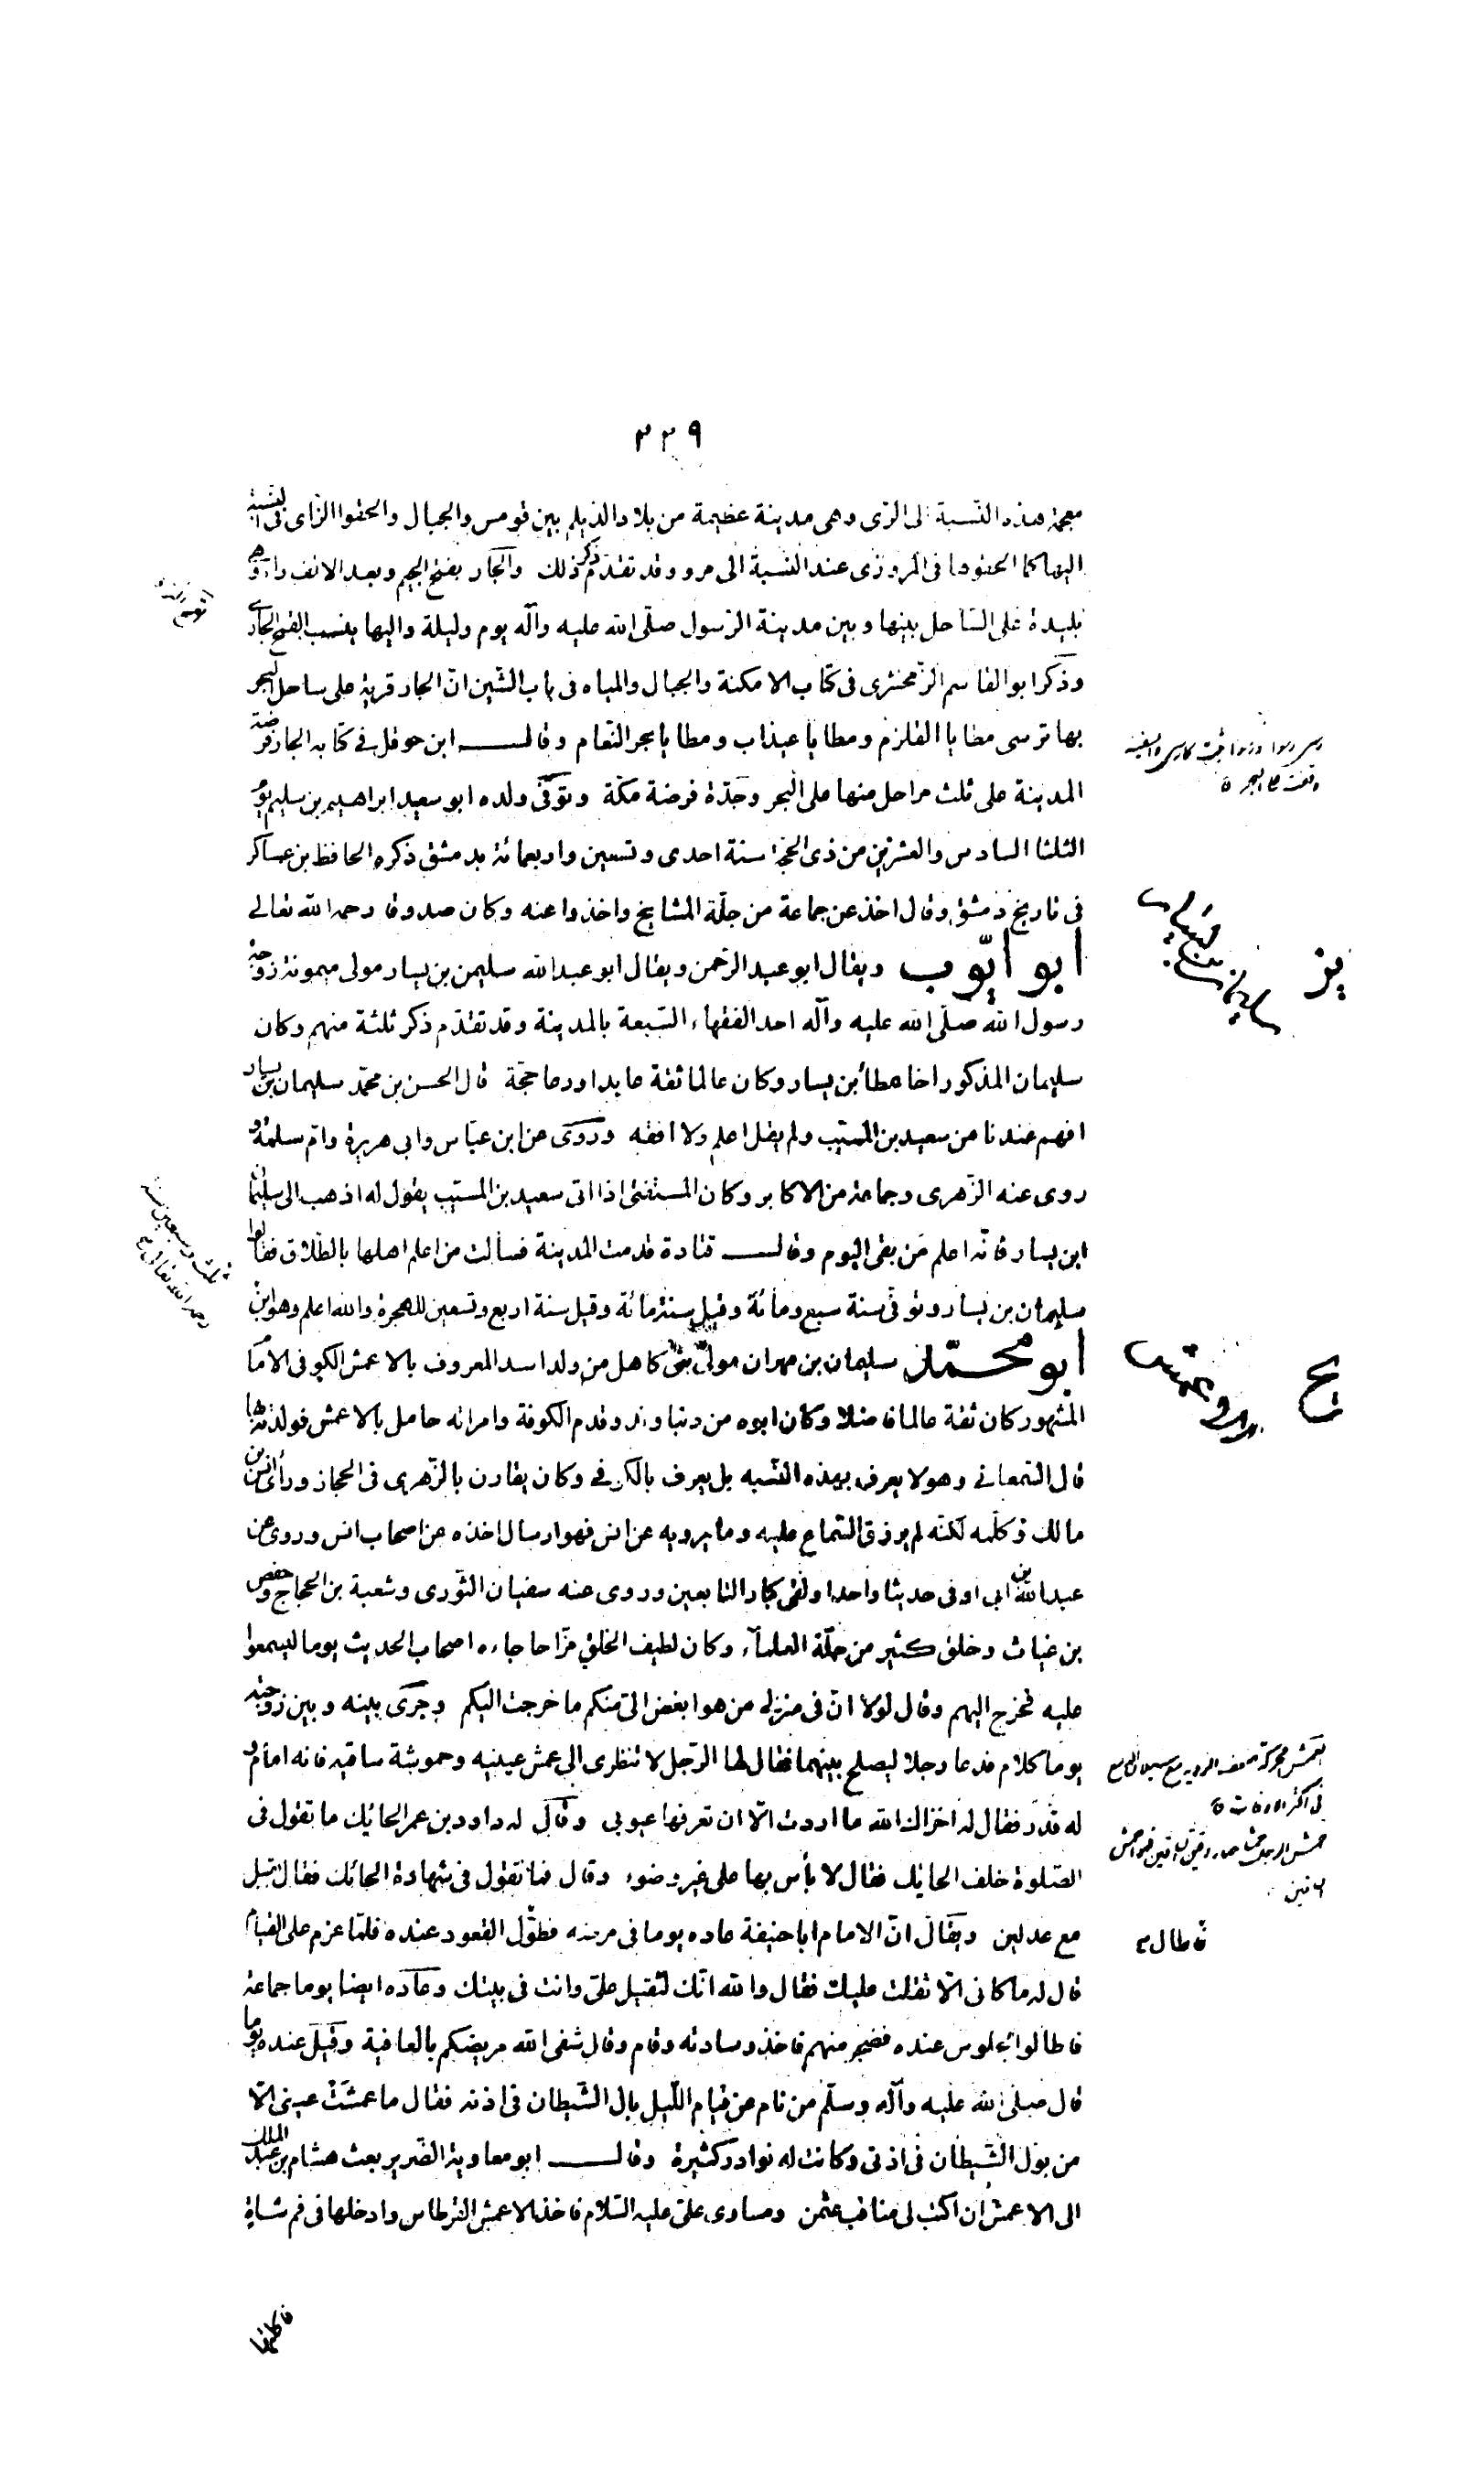 ٢٢٩
معجمة هذه النسبة الى الرى وهى مدينة عظيمة من بلاد الديلم بين قومس والجبال والحقوا الزاى فى النسبة
اليها كما الحقوها فى المروزى عند النسبة الى مرو وقد تقدم ذكر ذلك والجار بفتح الجيم وبعد الالف راء وهى
بليدة على الساحل بينها وبين مدينة الرسول صلى الله عليه وآله يوم وليلة واليها ينسب القمح الجارى
وذكر ابو القاسم الزمخشرى فى كتاب الامكنة والجبال والمياه فى باب الشين ان الجار قرية على ساحل البحر
بها ترسى مطايا القلزم ومطايا عيذاب ومطايا بحر النعام وقال ابن حوقل فى كتابه الجار فرضة
المدينة على ثلث مراحل منها على البحر وجدة فرضة مكة وتوفى ولده ابو سعيد ابراهيم بن سليم يوم
الثلثا السادس والعشرين من ذى الحجة سنة احدى وتسعين واربعمائة بدمشق ذكره الحافظ بن عساكر
فى تاريخ دمشق وقال اخذ عن جماعة من جلة المشايخ واخذوا عنه وكان صدوقا رحمه الله تعالى
ابو ايّوب ويقال ابو عبد الرحمن ويقال ابو عبدالله سليمن بن يسار مولى ميمونة زوجة
رسول الله صلى الله عليه وآله احد الفقهاء السبعة بالمدينة وقد تقدم ذكر ثلثة منهم وكان
سليمان المذكور اخا عطأ بن يسار وكان عالما ثقة عابدا ورعا حجة قال الحسن بن محمد سليمان بن يسار
افهم عندنا من سعيد بن المسيب ولم يقل اعلم ولا افقه وروى عن ابن عباس وابى هريرة وام سلمة و
روى عنه الزهرى وجماعة من الاكابر وكان المستفتى اذا اتى سعيد بن المسيب يقول له اذهب الى سليمان
ابن يسار فانه اعلم من بقى اليوم وقال قتادة قدمت المدينة فسألت من اعلم اهلها بالطلاق فقالوا
سليمان بن يسار وتوفى سنة سبع ومائة وقيل سنة مائة وقيل سنة اربع وتسعين للهجرة والله اعلم وهو ابن
ثلث وسبعين سنة
رحمه الله تعالى
ابو محمّد سليمان بن مهران مولى بنى كاهل من ولد اسد المعروف بالاعمش الكوفى الامام
المشهور كان ثقة عالما فاضلا وكان ابوه من دنباوند وقدم الكوفة وامراته حامل بالاعمش فولدته بها
قال السمعانى وهو لا يعرف بهذه النسبه بل يعرف بالكوفى وكان يقارن بالزهرى فى الحجاز ورأى انس بن
مالك وكلمه لكنه لم يرزق السماع عليه وما يرويه عن انس فهو ارسال اخذه عن اصحاب انس وروى عن
عبد الله بن ابى اوفى حديثا واحدا ولقى كبار التابعين وروى عنه سفيان الثورى وشعبة بن الحجاج وحفص
بن غياث وخلق كثير من جلة العلمآء وكان لطيف الخلق مزاحا جاءه اصحاب الحديث يوما ليسمعوا
عليه فخرج اليهم وقال لولا ان فى منزلى من هو ابغض الى منكم ما خرجت اليكم وجرى بينه وبين زوجته
يوما كلام فدعا رجلا ليصلح بينهما فقال لها الرجل لا تنظرى الى عمش عينيه وحموشة ساقيه فانه امام و
له قدر فقال له اخزاك الله ما اردت الا ان تعرفها عيوبى وقال له داود بن عمر الحائك ما تقول فى
الصلوة خلف الحايك فقال لا بأس بها على غير وضوء وقال فما تقول فى شهادة الحائك فقال تقبل
مع عدلين ويقال ان الامام ابا حنيفة عاده يوما فى مرضه فطول القعود عنده فلما عزم على القيام
قال له ما كانى الا ثقلت عليك فقال والله انك لثقيل على وانت فى بيتك وعاده ايضا يوما جماعة
فاطالوا الجلوس عنده فضجر منهم فاخذ وسادته وقام وقال شفى الله مريضكم بالعافية وقيل عنده يوما
قال صلى الله عليه وآله وسلم من نام عن قيام الليل بال الشيطان فى اذنه فقال ما عمشت عينى الا
من بول الشيطان فى اذنى وكانت له نوادر كثيرة وقال ابو معاوية الضرير بعث هشام بن عبد الملك
الى الاعمش ان اكتب لى مناقب عثمن ومساوى على عليه السلام فاخذ الاعمش القرطاس وادخلها فى فم شاة
يز
سليمان بن يسار
يح
العمش محركة ضعف الروية مع سيلان الدمع
فى اكثر الاوقات
فاطال
فاكلتها